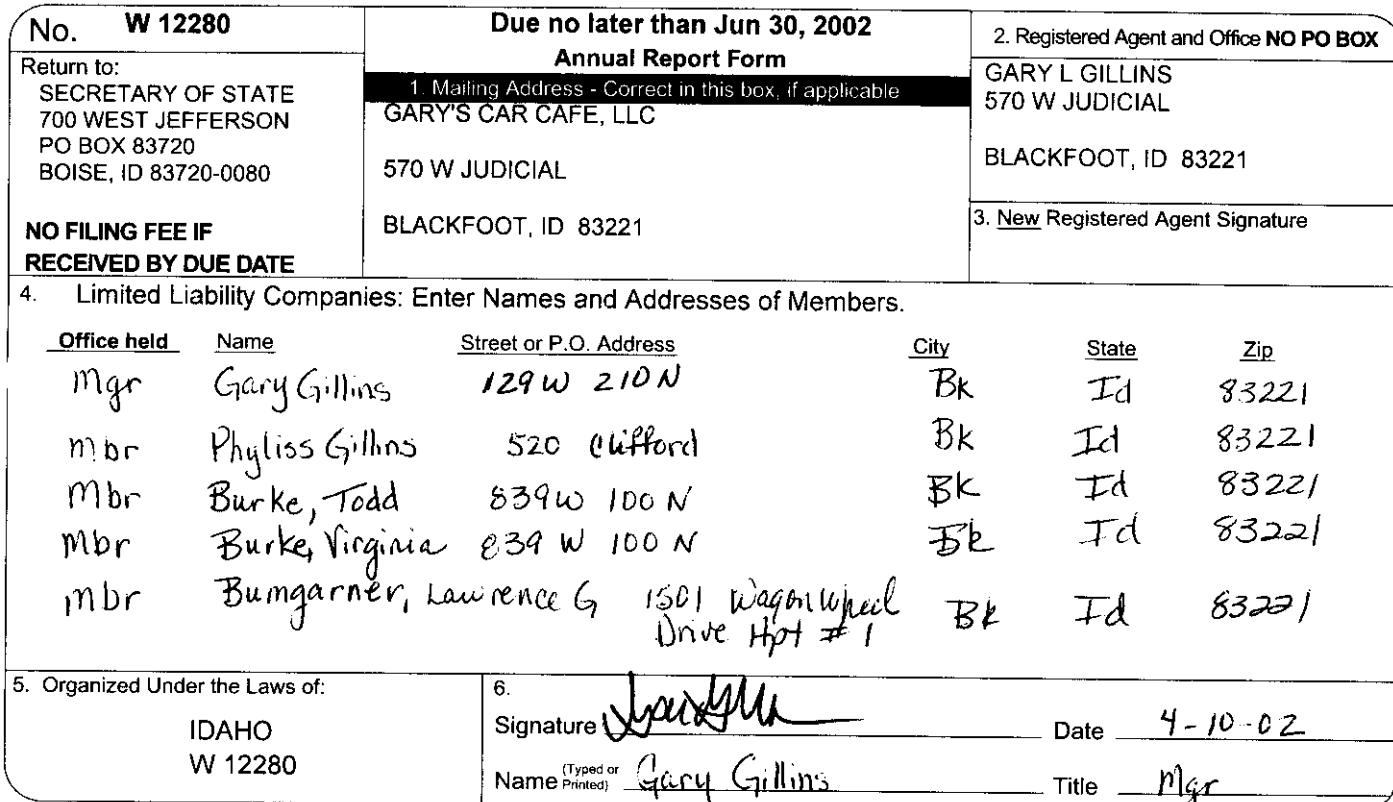 No. W 12280
Return to:
SECRETARY OF STATE
700 WEST JEFFERSON
PO BOX 83720
BOISE, ID 83720-0080
NO FILING FEE IF
RECEIVED BY DUE DATE
Due no later than Jun 30, 2002
Annual Report Form
1. Mailing Address - Correct in this box, if applicable
GARY'S CAR CAFE, LLC
570 W JUDICIAL
BLACKFOOT, ID 83221
2. Registered Agent and Office NO PO BOX
GARY L GILLINS
570 W JUDICIAL
BLACKFOOT, ID 83221
3. New Registered Agent Signature
4. Limited Liability Companies: Enter Names and Addresses of Members.
Office held Name Street or P.O. Address City State Zip
Mgr Gary Gillins 129 W 210 N Bk Id 83221
mbr Phyliss Gillins 520 Clifford Bk Id 83221
Mbr Burke, Todd 839 W 100 N Bk Id 83221
Mbr Burke, Virginia 839 W 100 N Bk Id 83221
mbr Bumgarner, Lawrence G 1501 Wagon Wheel Bk Id 83221
Drive Apt # 1
5. Organized Under the Laws of:
IDAHO
W 12280
6.
Signature Date 4-10-02
Name (Typed or Printed) Gary Gillins Title Mgr